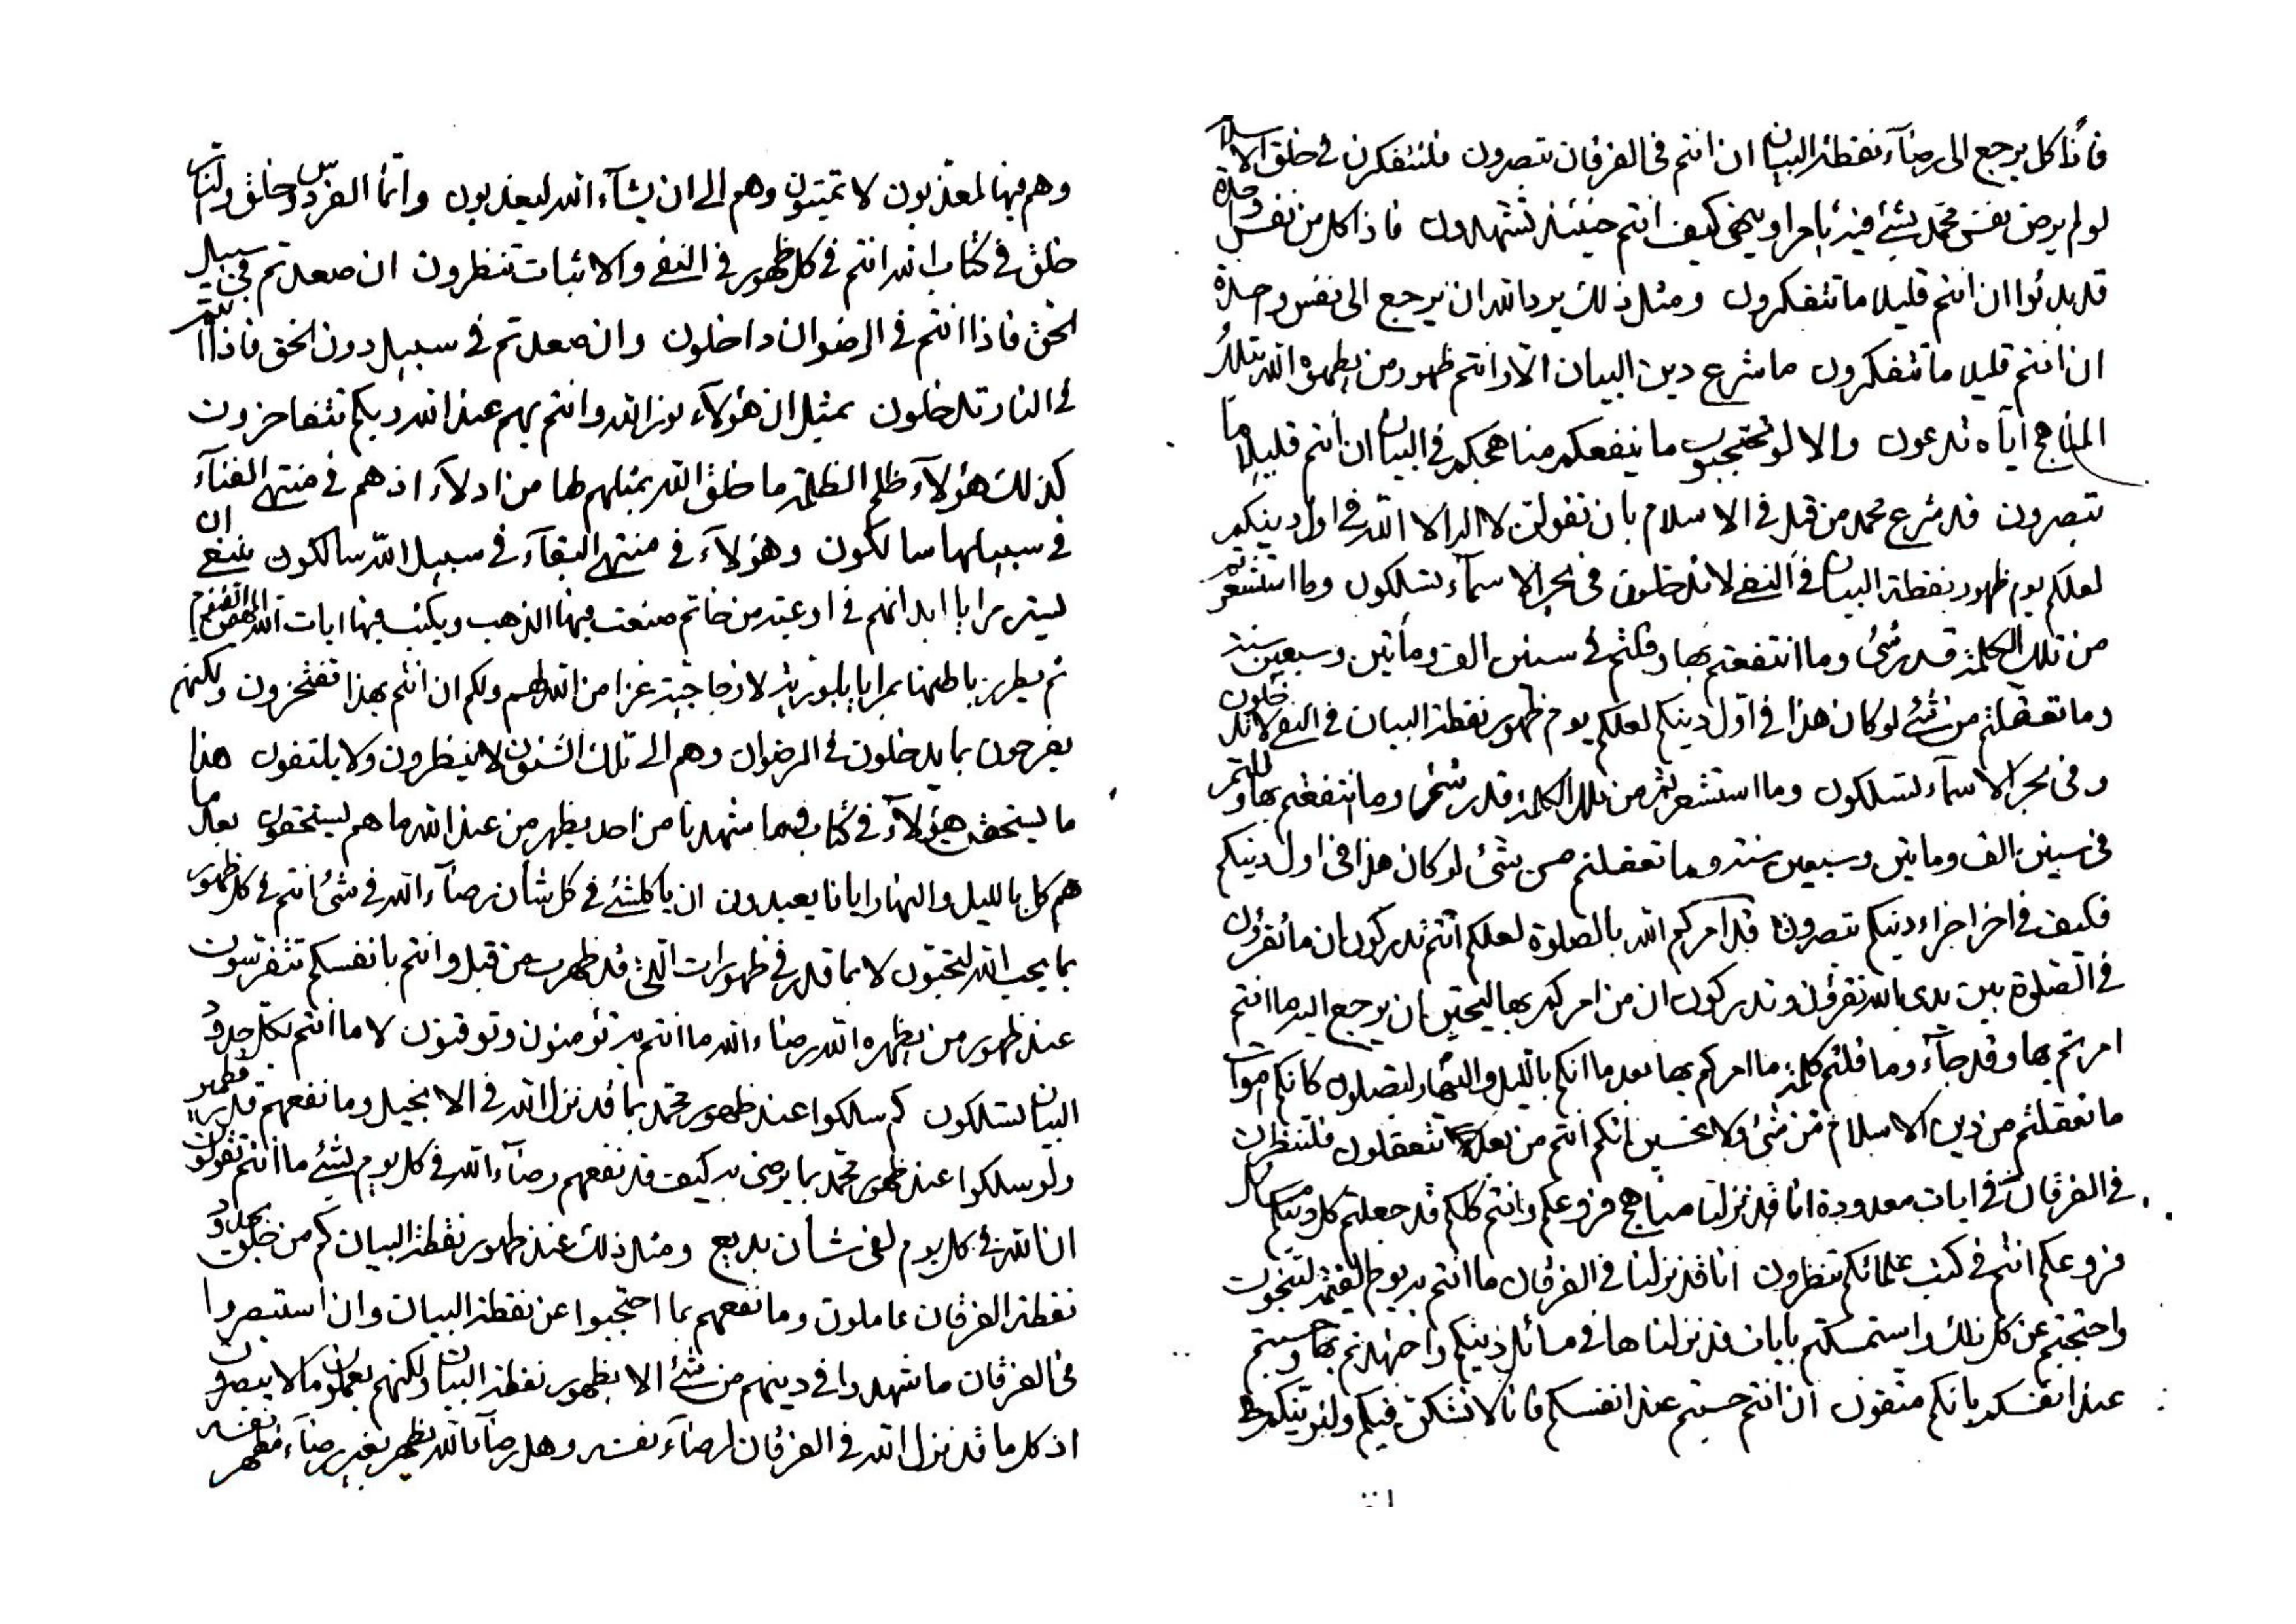 فاذا كل يرجع الى رضآء نقطة البيان ان انتم فى الفرقان تبصرون فلتتفكرن فى خلق الاسلام
لو لم يرض نفس محمد بشئ فيه بامر او ينهى كيف انتم حينئذ تشهدون فاذا كل من نفس واحدة
قد بدئوا ان انتم قليلا ما تتفكرون ومثل ذلك يرد الله ان يرجع الى نفس واحدة
ان انتم قليلا ما تتفكرون ما شرع دين البيان الا وانتم ظهور من يظهره الله بتلك
المناهج اياه تدعون والا لو تحتجبون ما ينفعكم مناهجكم فى البيان ان انتم قليلا ما
تبصرون قد شرع محمد من قبل فى الاسلام بان تقولن لا اله الا الله فى اول دينكم
لعلكم يوم ظهور نقطة البيان فى النفى لا تدخلون فى بحر الاسمآء تسلكون وما استشعرتم
من تلك الكلمة قدر شئ وما انتفعتم بها وقلتم فى سنين الف ومأتين وسبعين سنة
وما تعقلتم من شئ لو كان هذا فى اول دينكم لعلكم يوم ظهور نقطة البيان فى النفى لا تدخلون
وفى بحر الاسمآء تسلكون وما استشعرتم من تلك الكلمة قدر شئ وما انتفعتم بها وقلتم
فى سنين الف ومأتين وسبعين سنة وما تعقلتم من شئ لو كان هذا فى اول دينكم
فكيف فى اخر اجزاء دينكم تبصرون قد امركم الله بالصلوة لعلكم انتم تدركون ان ما تقرؤن
فى الصلوة بين يدى الله تقرؤن وتدركون ان من امركم بها ليحبن ان يرجع اليه ما انتم
امرتم بها وقد جآء وما قلتم كلمة ما امركم بها بعد ما انكم بالليل والنهار لتصلون كانكم اموات
ما تعقلتم من دين الاسلام من شئ ولا تحسبن انكم انتم من بعد تتعقلون فلتنظرن
فى الفرقان فى ايات معدودة انا قد نزلنا مناهج فروعكم وانتم كلكم قد جعلتم كل دينكم مسائل
فروعكم انتم فى كتب علمائكم تنظرون انا قد نزلنا فى الفرقان ما انتم به يوم القيمة لتنجون
واحتجبتم عن كل ذلك واستمسكتم بايات قد نزلناها فى مسائل دينكم واجتهدتم بها وحسبتم
عند انفسكم بانكم متقون ان انتم حسبتم عند انفسكم فانا لا نشكن فيكم ولنرينكم
وهم فيها لمعذبون لا تميتون وهم الى ان يشآء الله ليعذبون وانما الفردوس خلق والنار
خلق فى كتاب الله انتم فى كل ظهور فى النفى والاثبات تنظرون ان صعدتم فى سبيل
الحق فاذا انتم فى الرضوان داخلون وان صعدتم فى سبيل دون الحق فاذا انتم
فى النار تدخلون بمثل ان هؤلآء لله وانتم بهم عند الله ربكم تتفاخرون
كذلك هؤلآء ظلم الظلمة ما خلق الله بمثلهم لها من ادلآء اذ هم فى منتهى الفنآء
فى سبيلها سالكون وهؤلآء فى منتهى البقآء فى سبيل الله سالكون ينبغى ان
ليستر مرايا ابدانهم فى اوعية من خاتم صنعت فيها الذهب ويكتب فيها ايات الله المهيمن القيوم
ثم يطرز باطنها بمرايا بلورية لا زجاجية عزا من الله لهم ولكم ان انتم بهذا تفتخرون ولكنهم
يفرحون بما يدخلون فى الرضوان وهم الى تلك الشئون لا ينظرون ولا يلتفتون هذا
ما يستحقن هؤلآء فى كتاب فيما شهدنا من احد يظهر من عند الله ما هم ليستحقون بعد ما
هم كل بالليل والنهار ايانا يعبدون ان يا كلشئ فى كل شأن رضآء الله فى شئ انتم فى كل ظهور
بما يحب الله لتحبون لا بما قدر فى ظهورات التى قد ظهرت من قبل وانتم بانفسكم تتفرسون
عند ظهور من يظهره الله رضاء الله ما انتم به تؤمنون وتوقنون لا ما انتم بكل حدود
البيان تسلكون كم سلكوا عند ظهور محمد بما قد نزل الله فى الانجيل وما نفعهم قدر قطمير
ولو سلكوا عند ظهور محمد بما يرضى به كيف قد نفعهم رضآء الله فى كل يوم بشئ ما انتم تقولون
ان لله فى كل يوم لفى شأن بديع ومثل ذلك عند ظهور نقطة البيان كم من خلق بحدود
نقطة الفرقان عاملون وما نفعهم بما احتجبوا عن نقطة البيان وان استبصروا
فى الفرقان ما شهدوا فى دينهم من شئ الا بظهور نقطة البيان ولكنهم يعملون ما لا يبصرون
اذ كل ما قد نزل الله فى الفرقان لرضآء نفسه وهل رضآء الله يظهر بغير رضآء مظهر نفسه